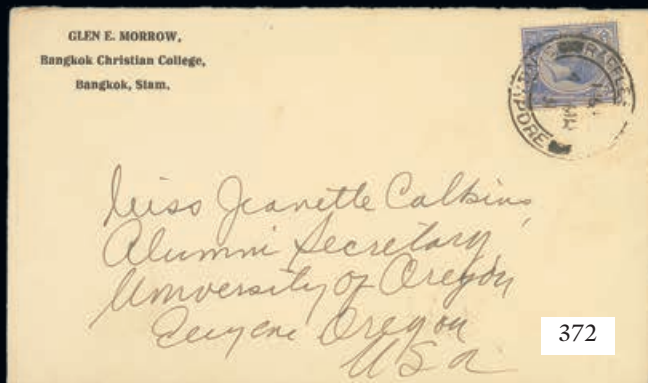 GLEN E. MORROW,
Bangkok Christian College,
Bangkok, Siam.
RAFFLES
PORE
Miss Jeanette Calkins,
Alumni Secretary,
University of Oregon
Eugene Oregon
USA
372